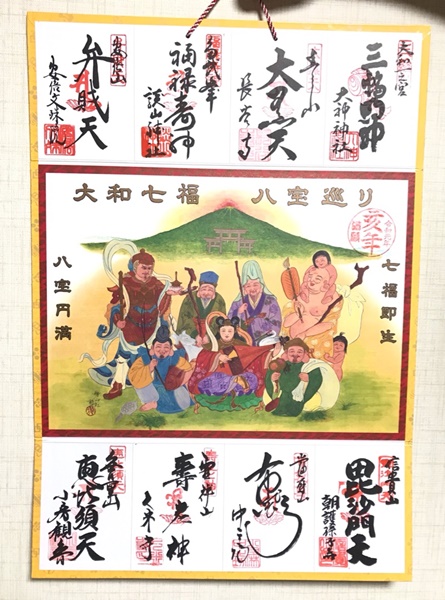 大和一之宮
三輪明神
大神神社
大黒天
長谷寺
福禄寿神
談山神社
安倍山
弁財天
安倍文殊院
大和七福 八宝巡り
亥年
七福即生
八宝円満
信貴山
毘沙門天
朝護孫子寺
布袋
中之坊
壽老神
久米寺
恵比須天
小房観音